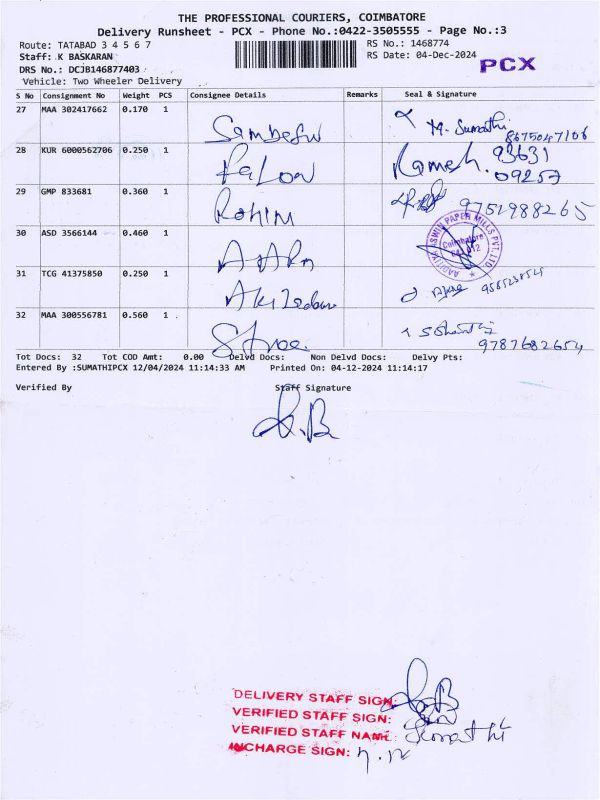 THE PROFESSIONAL COURIERS, COIMBATORE
Delivery Runsheet - PCX - Phone No.:0422-3505555 - Page No.:3
Route: TATABAD 3 4 5 6 7
RS No.: 1468774
Staff: K BASKARAN
RS Date: 04-Dec-2024
PCX
DRS No.: DCJB146877403
Vehicle: Two Wheeler Delivery
S No Consignment No Weight PCS Consignee Details Remarks Seal & Signature
27 MAA 302417662 0.170 1 M. Sumathi
8675047106
28 KUR 6000562706 0.250 1 Ramesh. 93631
09257
29 GMP 833681 0.360 1 Rohim 9751988265
30 ASD 3566144 0.460 1
AADITYA ASWIN PAPER MILLS PVT. LTD. Coimbatore
31 TCG 41375850 0.250 1
32 MAA 300556781 0.560 1 S Shanthi
9787682654
Tot Docs: 32 Tot COD Amt: 0.00 Delvd Docs: Non Delvd Docs: Delvy Pts:
Entered By :SUMATHIPCX 12/04/2024 11:14:33 AM Printed On: 04-12-2024 11:14:17
Verified By Staff Signature
DELIVERY STAFF SIGN:
VERIFIED STAFF SIGN:
VERIFIED STAFF NAME:
INCHARGE SIGN: